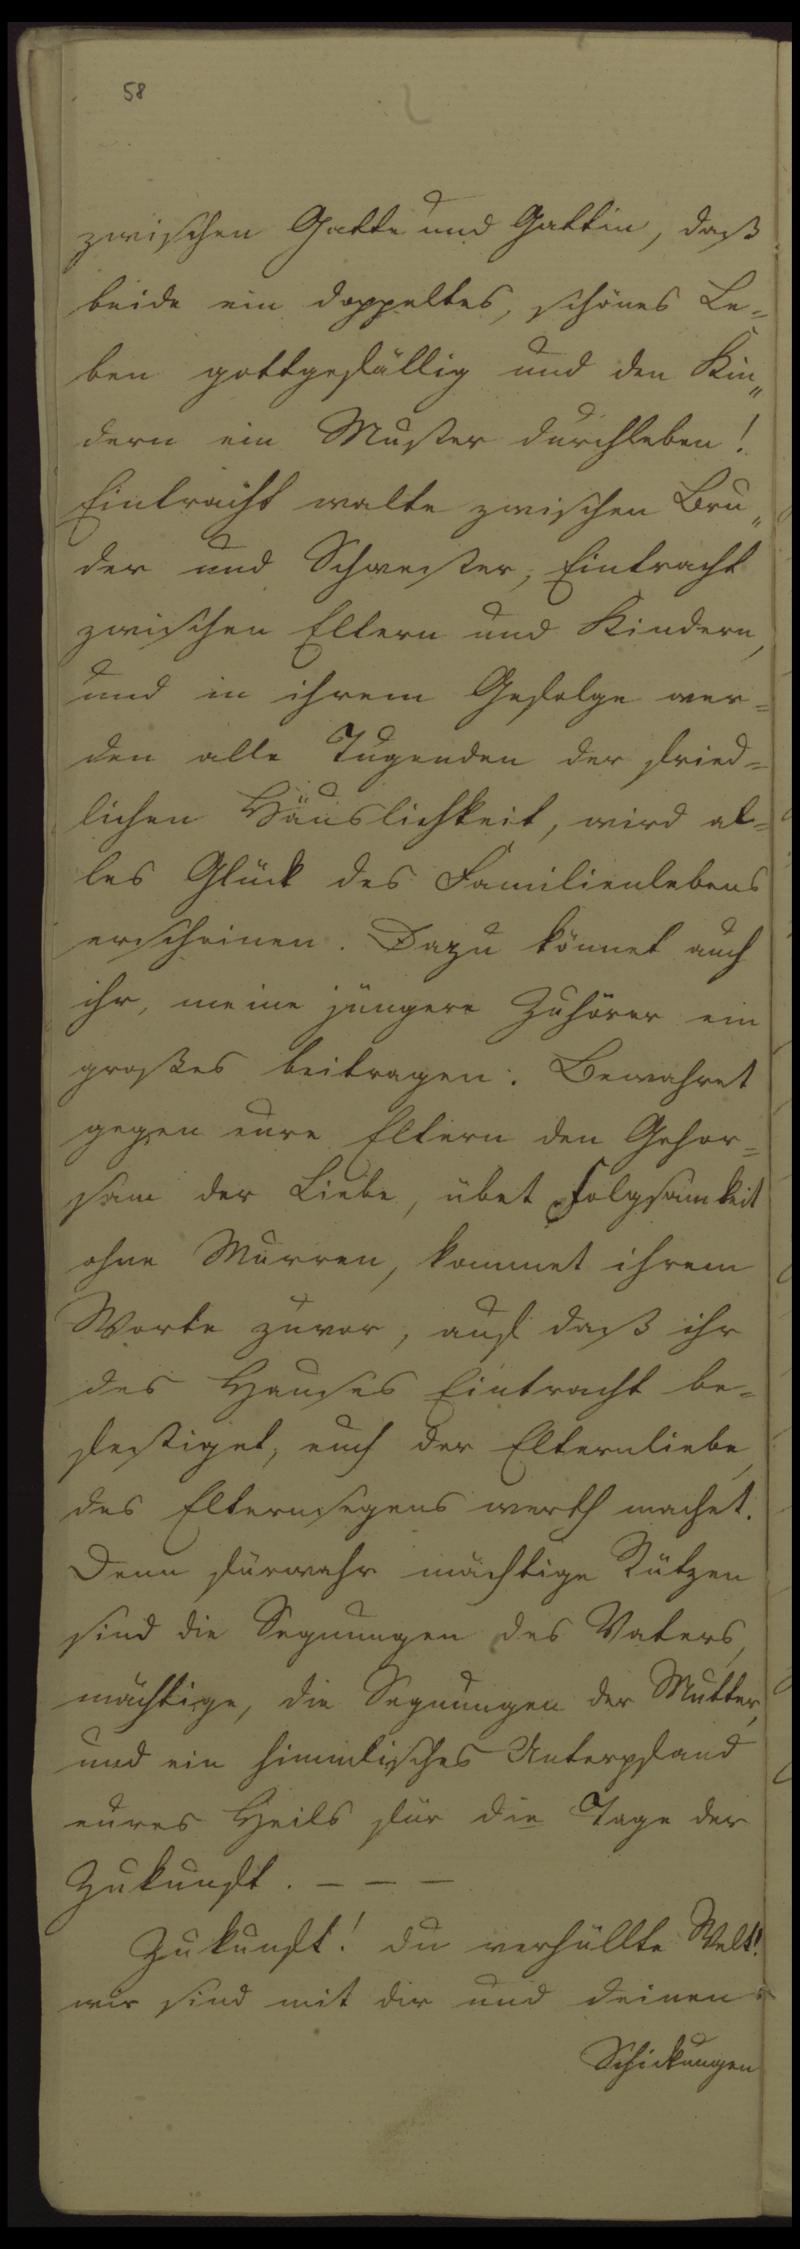 58
zwischen Gatte und Gattin, daß
beide ein doppeltes, schönes Le=
ben gottgefällig und den Kin„
dern ein Muster durchleben!
Eintracht walte zwischen Bru„
der und Schwester, Eintracht
zwischen Eltern und Kindern,
und in ihrem Gefolge wer=
den alle Tugenden der fried=
lichen Häuslichkeit, wird al=
les Glück des Familienlebens
erscheinen. Dazu könnet auch
ihr, meine jüngere Zuhörer ein
großes beitragen. Bewahret
gegen eure Eltern den Gehor=
sam der Liebe, übet Folgsamkeit
ohne Murren, kommet ihrem
Worte zuvor, auf daß ihr
des Hauses Eintracht be=
festiget, euch der Elternliebe,
des Elternsegens werth machet.
Denn fürwahr mächtige Stützen
sind die Segnungen des Vaters,
mächtige, die Segnungen der Mutter,
und ein himmlisches Unterpfand
eures Heils für die Tage der
Zukunft. – – –
Zukunft! du verhüllte Welt!
wir sind mit dir und deinen
Schickungen